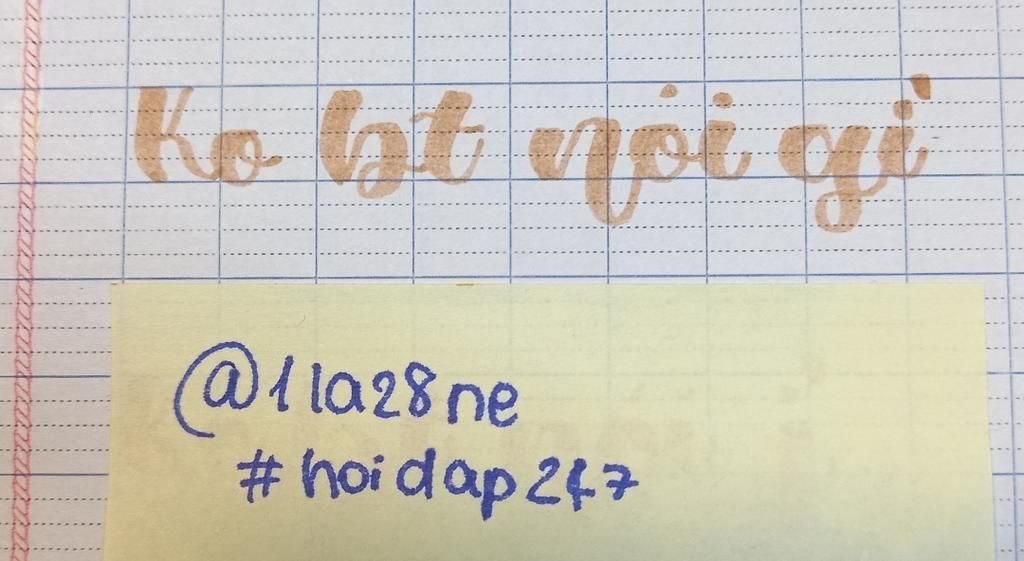 Ko bt nói gì
@1la28ne
#hoidap247